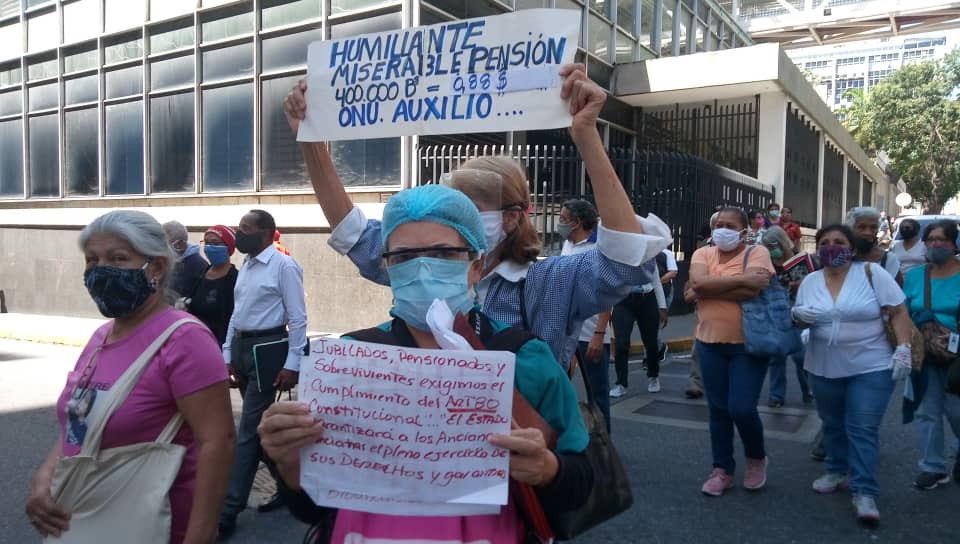 HUMILLANTE
MISERABLE PENSIÓN
400.000 Bs = 0,88$
ONU. AUXILIO....
JUBILADOS, Pensionados y
Sobrevivientes exigimos el
Cumplimiento del ART 80
Constitucional..." El ESTADO
Garantizará a los Ancianos
el pleno ejercicio de
sus DERECHOS y garantías